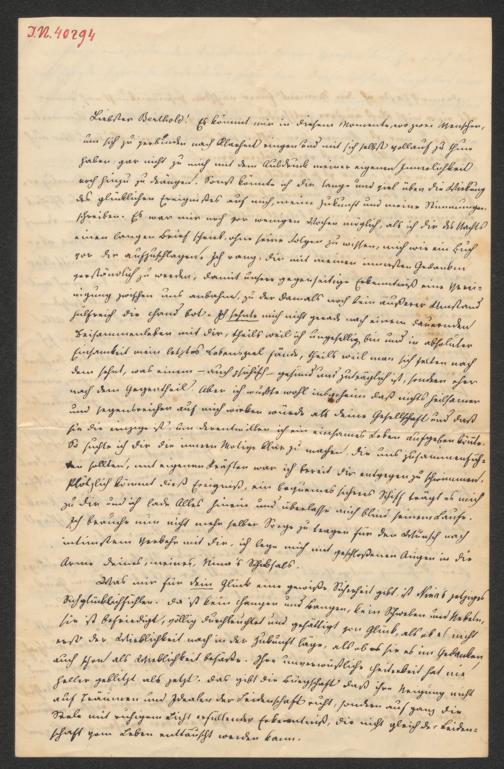 I.N. 40294
Liebster Berthold! Es kommt mir in diesem Momente, wo zwei Menschen,
um sich zu verbinden nach Klarheit ringen und mit sich selbst vollauf zu thun
haben gar nicht zu noch mit dem Ausdruck meiner eigenen Innerlichkeit
noch hinzu zu drängen. Sonst könnte ich dir lange und viel über die Wirkung
des glücklichen Ereignißes auf mich, meine Zukunft und meine Stimmungen
schreiben. Es war mir noch vor wenigen Wochen möglich, als ich dir des Nachts
einen langen Brief schrieb, ohne seine Folgen zu wissen, mich wie ein Buch
vor dir aufzuschlagen. Ich rang, dir mit meinen innersten Gedanken
verständlich zu werden, damit unsere gegenseitige Erkenntniß eine Verei-
nigung zwischen uns anbahne, zu der damals noch kein äußerer Umstand
hilfreich die Hand bot. Ich sehnte mich nicht grade nach einem dauernden
Beisammenleben mit dir, theils weil ich ungesellig bin und in absoluter
Einsamkeit mein letztes Lebensziel fände, theils weil man sich selten nach
dem sehnt, was einem – auch physisch – gesund und zuträglich ist, sondern eher
nach dem Gegentheil. Aber ich wußte wohl insgeheim daß nichts heilsamer
und segensreicher auf mich wirken würde als deine Gesellschaft und daß
sie die einzige ist, um derentwillen ich ein einsames Leben aufgeben könnte.
So suchte ich dir die inneren Motive klar zu machen, die uns zusammenfüh-
ren sollten, mit eigenen Kräften war ich bereit dir entgegen zu schwimmen.
Plötzlich kommt dieß Ereigniß, ein bequemes sicheres Schiff trägt es mich
zu dir und ich lade Alles hinein und überlasse mich blind seinem Laufe.
Ich brauche nun nicht mehr selber Sorge zu tragen für den Wunsch nach
intimstem Verkehr mit dir, ich lege mich mit geschloßenen Augen in die
Arme deines, meines, Nina's Schicksals.
Was mir für dein Glück eine gewiße Sicherheit gibt, ist Nina's jetziges
Sichglücklichfühlen. Da ist kein Hangen und Bangen, kein Schweben und Nebeln,
sie ist befriedigt, völlig durchleuchtet und gesättigt von Glück, als ob es nicht
erst der Wirklichkeit nach in der Zukunft läge, als ob es sie es im Gedanken
auch schon als Wirklichkeit besäße. Ihre unverwüstliche Heiterkeit hat nie
heller geblitzt als jetzt. Das gibt die Bürgschaft daß ihre Neigung nicht
auf Träumen und Idealen der Leidenschaft ruht, sondern auf ganz die
Seele mit ruhigem Licht erfüllender Erkenntniß, die nicht gleich der Leiden-
schaft vom Leben enttäuscht werden kann.